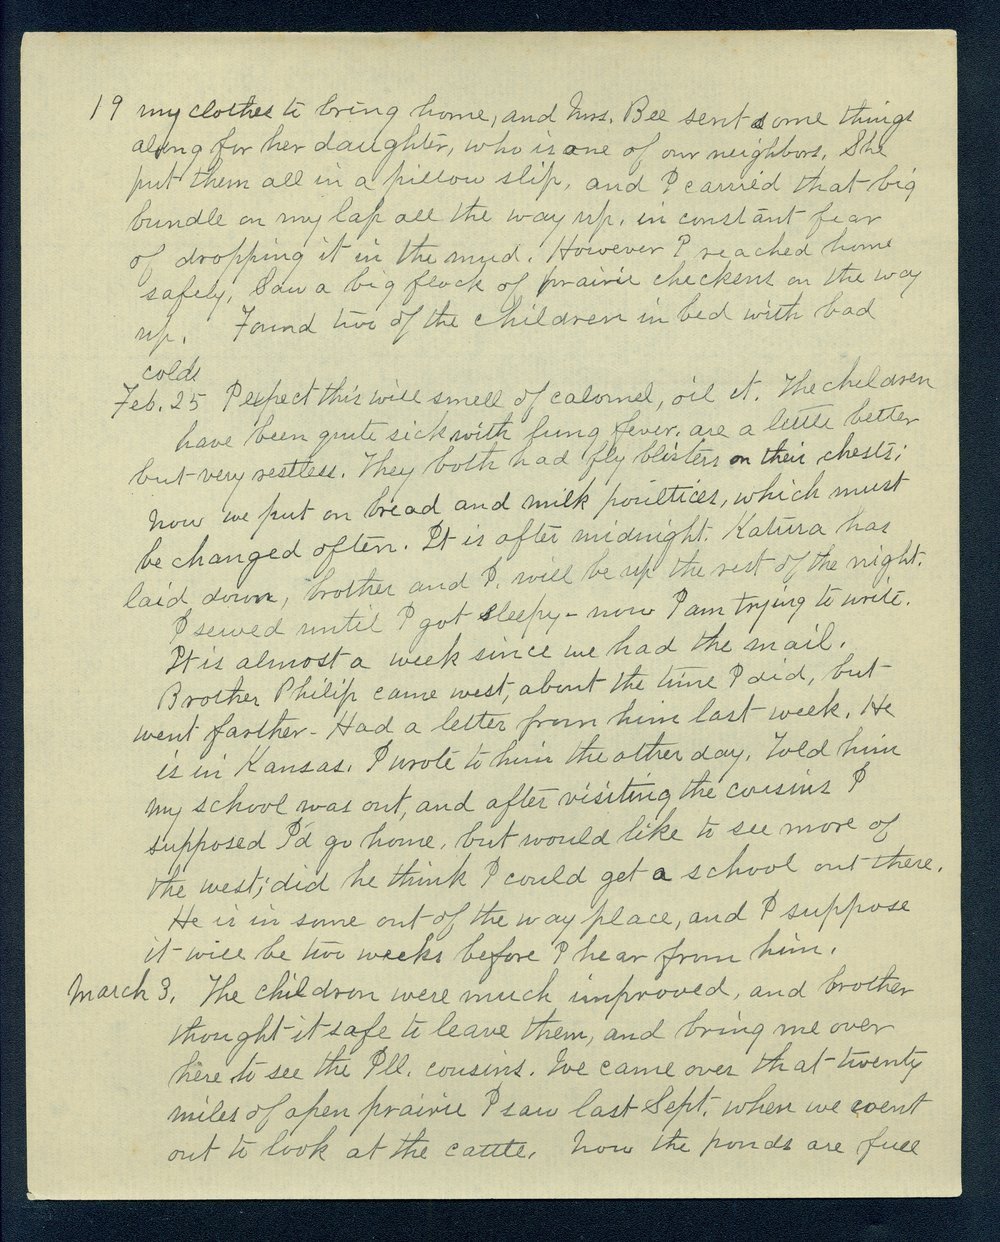 19 my clothes to bring home, and Mrs. Bee sent some things
along for her daughter, who is one of our neighbors. She
put them all in a pillow slip, and I carried that big
bundle on my lap all the way up, in constant fear
of dropping it in the mud. However I reached home
safely, Saw a big flock of prairie checkens on the way
up. Found two of the children in bed with bad
colds
Feb. 25 I expect this will smell of calomel, oil et. The children
have been quite sick with lung fever, are a little better
but very restless. They both had fly blisters on their chests;
now we put on bread and milk poultices, which must
be changed often. It is after midnight. Katura has
laid down, brother and I, will be up the rest of the night.
I sewed until I got sleepy - now I am trying to write.
It is almost a week since we had the mail.
Brother Philip came west, about the time I did, but
went farther - Had a letter from him last week. He
is in Kansas. I wrote to him the other day. Told him
my school was out, and after visiting the cousins I
supposed I'd go home, but would like to see more of
the west; did he think I could get a school out there.
He is in some out of the way place, and I suppose
it will be two weeks before I hear from him.
March 3. The children were much improved, and brother
thought it safe to leave them, and bring me over
here to see the Ill. cousins. We came over that twenty
miles of open prairie I saw last Sept. when we went
out to look at the cattle. Now the ponds are full